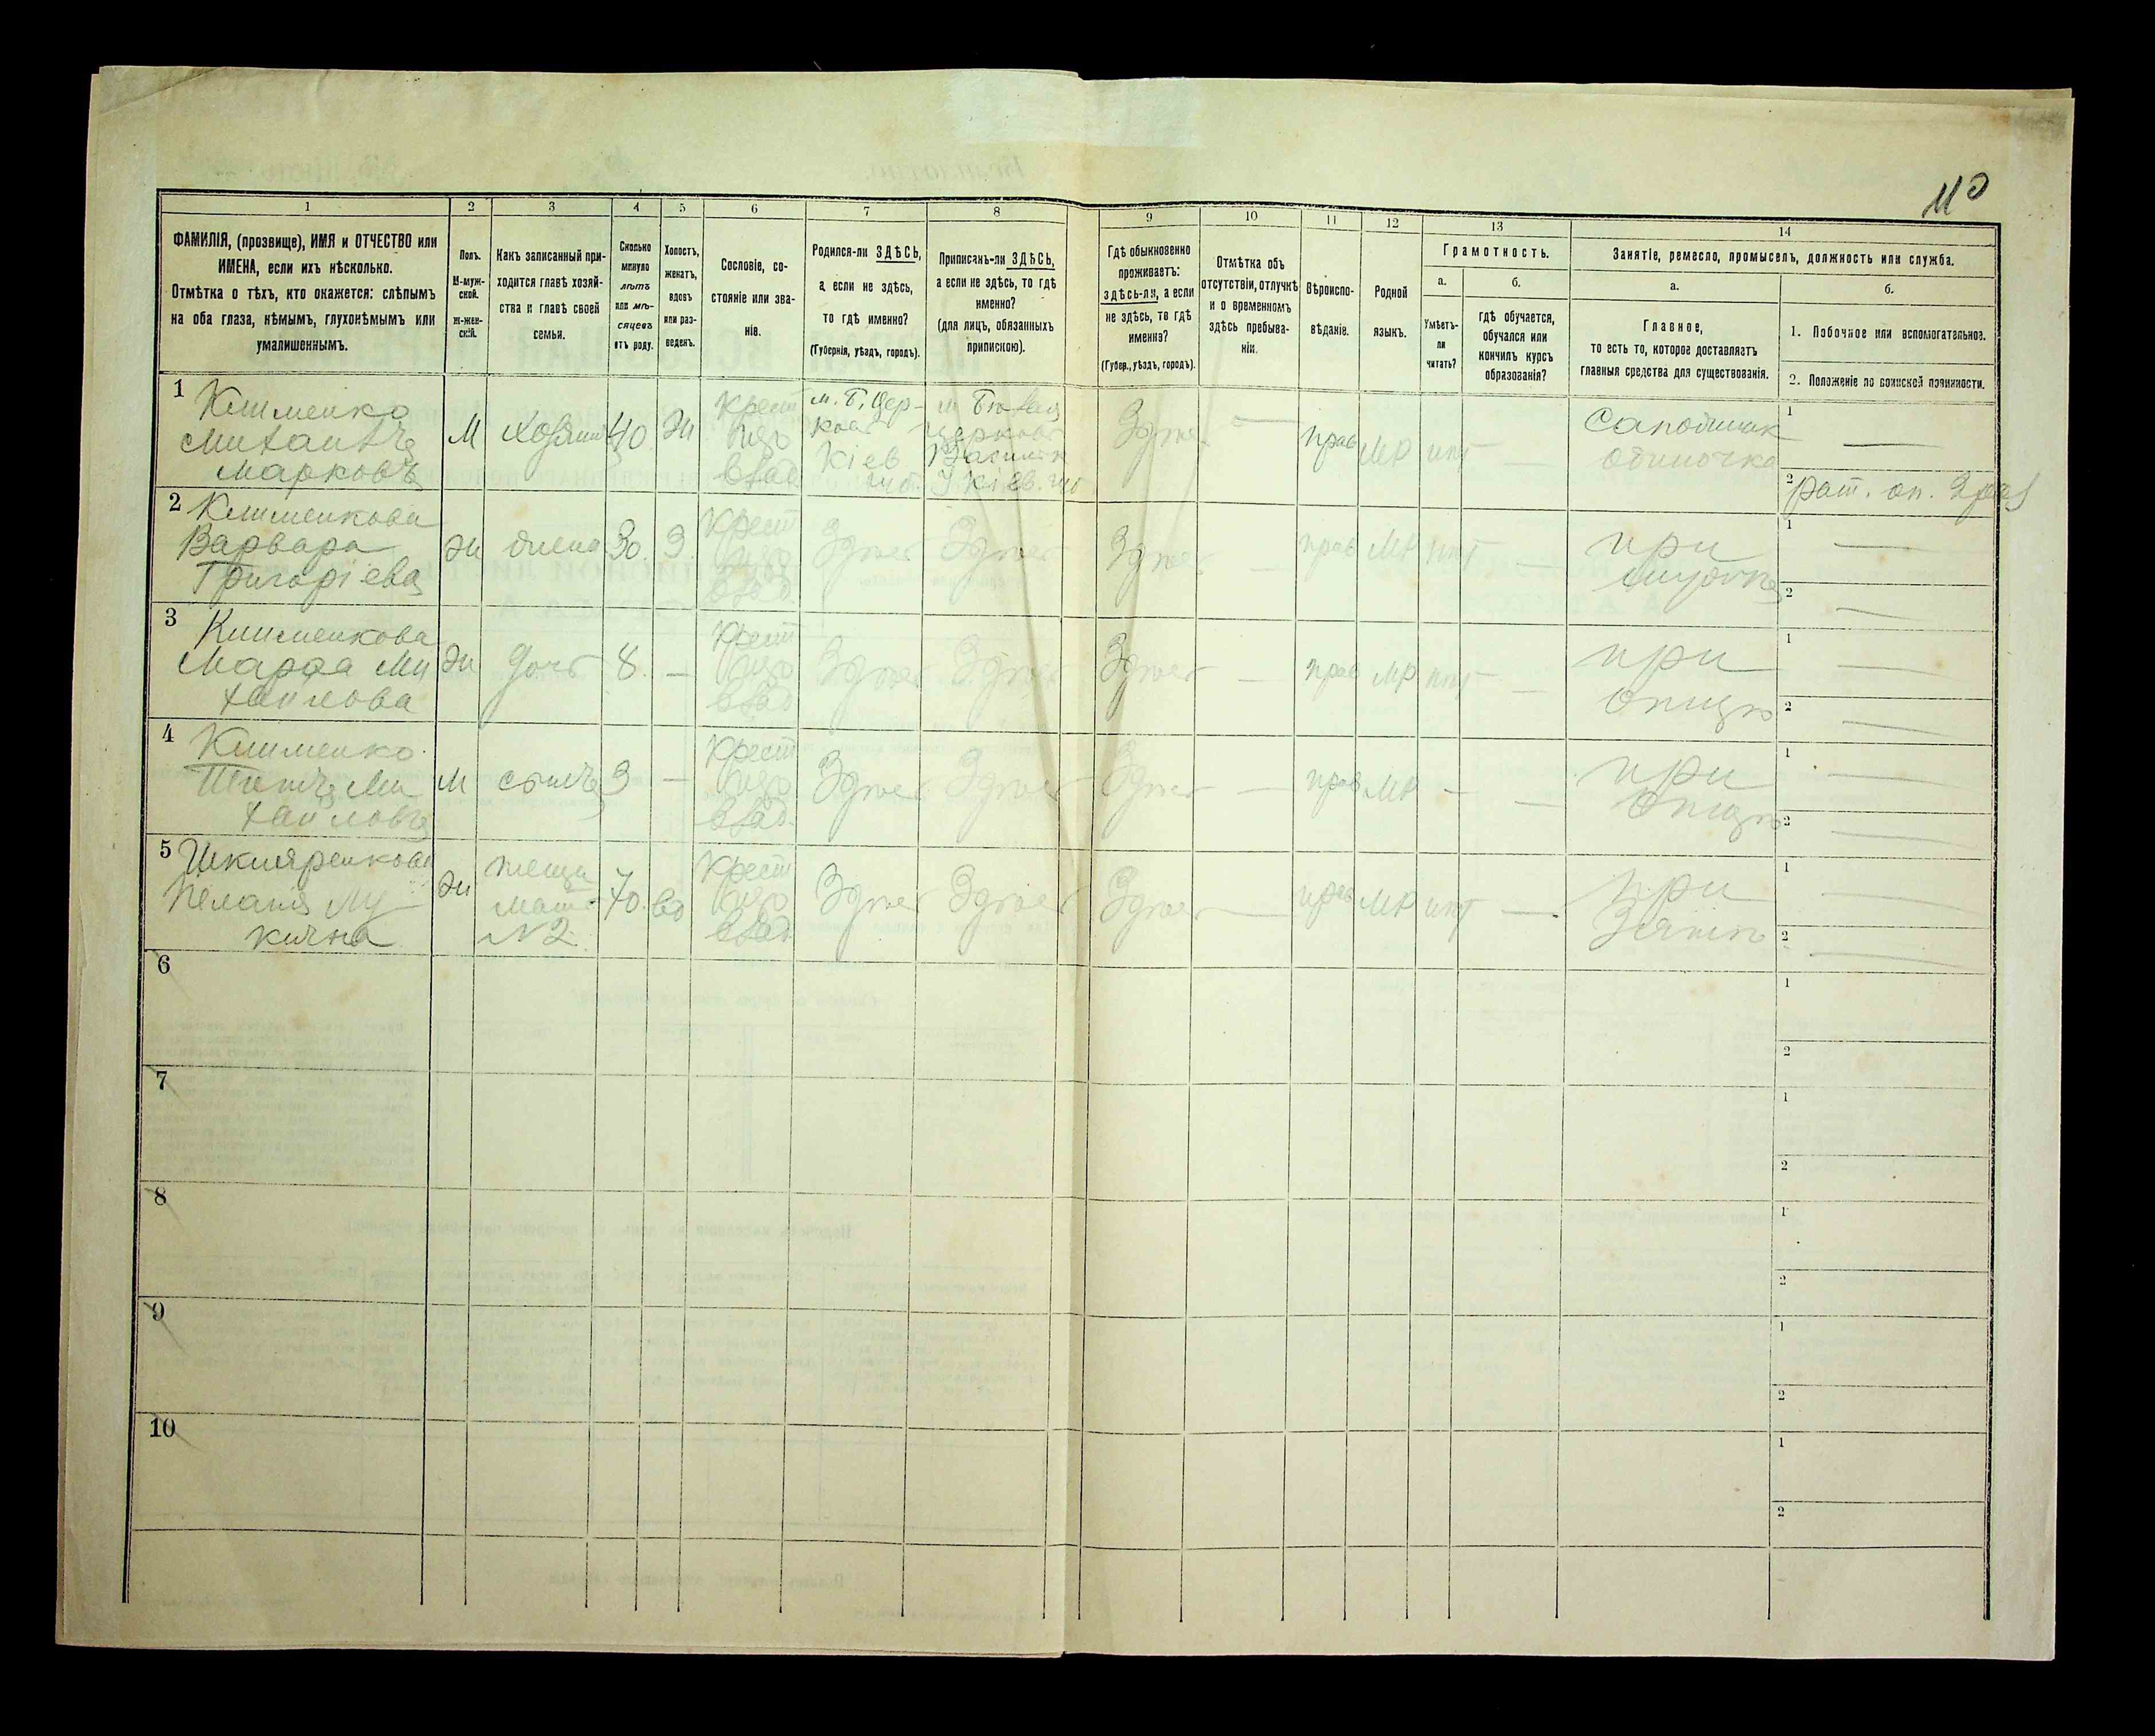 110
1 2 3 4 5 6 7 8 9 10 11 12 13 14
ФАМИЛІЯ, (прозвище), ИМЯ и ОТЧЕСТВО или
ИМЕНА, если ихъ нѣсколько.
Отмѣтка о тѣхъ, кто окажется: слѣпымъ
на оба глаза, нѣмымъ, глухонѣмымъ или
умалишеннымъ.
Полъ.
М-муж-
ской.
Ж-жен-
скій.
Какъ записанный при-
ходится главѣ хозяй-
ства и главѣ своей
семьи.
Сколько
минуло
лѣтъ
или мѣ-
сяцевъ
отъ роду.
Холостъ,
женатъ,
вдовъ
или раз-
веденъ.
Сословіе, со-
стояніе или зва-
ніе.
Родился-ли ЗДѢСЬ,
а если не здѣсь,
то гдѣ именно?
(Губернія, уѣздъ, городъ).
Приписанъ-ли ЗДѢСЬ,
а если не здѣсь, то гдѣ
именно?
(для лицъ, обязанныхъ
припискою).
Гдѣ обыкновенно
проживаетъ:
здѣсь-ли, а если
не здѣсь, то гдѣ
именно?
(Губер., уѣздъ, городъ).
Отмѣтка объ
отсутствіи, отлучкѣ
и о временномъ
здѣсь пребыва-
ніи.
Вѣроиспо-
вѣданіе.
Родной
языкъ.
Грамотность.
а.
Умѣетъ-
ли
читать?
б.
гдѣ обучается,
обучался или
кончилъ курсъ
образованія?
Занятіе, ремесло, промыселъ, должность или служба.
а.
Главное,
то есть то, которое доставляетъ
главныя средства для существованія.
б.
1. Побочное или вспомогательное.
2. Положеніе по воинской повинности.
1 Клименко
Михаилъ
Марковъ
М
хозяинъ
40
Ж
Крест
изъ
влад
м. Б. Цер-
ковь
Кіев
губ.
м Бѣлая
церковь
Василк
У Кіев. губ
Здѣсь
—
прав
МР
нѣт
—
Сапожник
одиночка
1 —
2 рат. оп.
2 Клименкова
Варвара
Григоріева
Ж
жена
30
З
Крест
изъ
влад.
Здѣсь
Здѣсь
Здѣсь
—
прав
МР
нѣт
—
при
мужѣ
1 —
2 —
3 Клименкова
Марфа Ми
хайлова
Ж
дочь
8
—
Крест
изъ
влад
Здѣсь
Здѣсь
Здѣсь
—
прав
МР
нѣт
—
при
отцѣ
1 —
2 —
4 Клименко
Ми
хайловъ
М
сынъ
3
—
Крест
изъ
влад.
Здѣсь
Здѣсь
Здѣсь
—
прав
МР
—
—
при
отцѣ
1 —
2 —
5 Шкляренкова
Пелагія Лу
кична
Ж
теща
мать
N2
70
вд
Крест
изъ
влад
Здѣсь
Здѣсь
Здѣсь
—
прав
МР
нѣт
—
при
Зятѣ
1 —
2 —
6
1
2
7
1
2
8
1
2
9
1
2
10
1
2